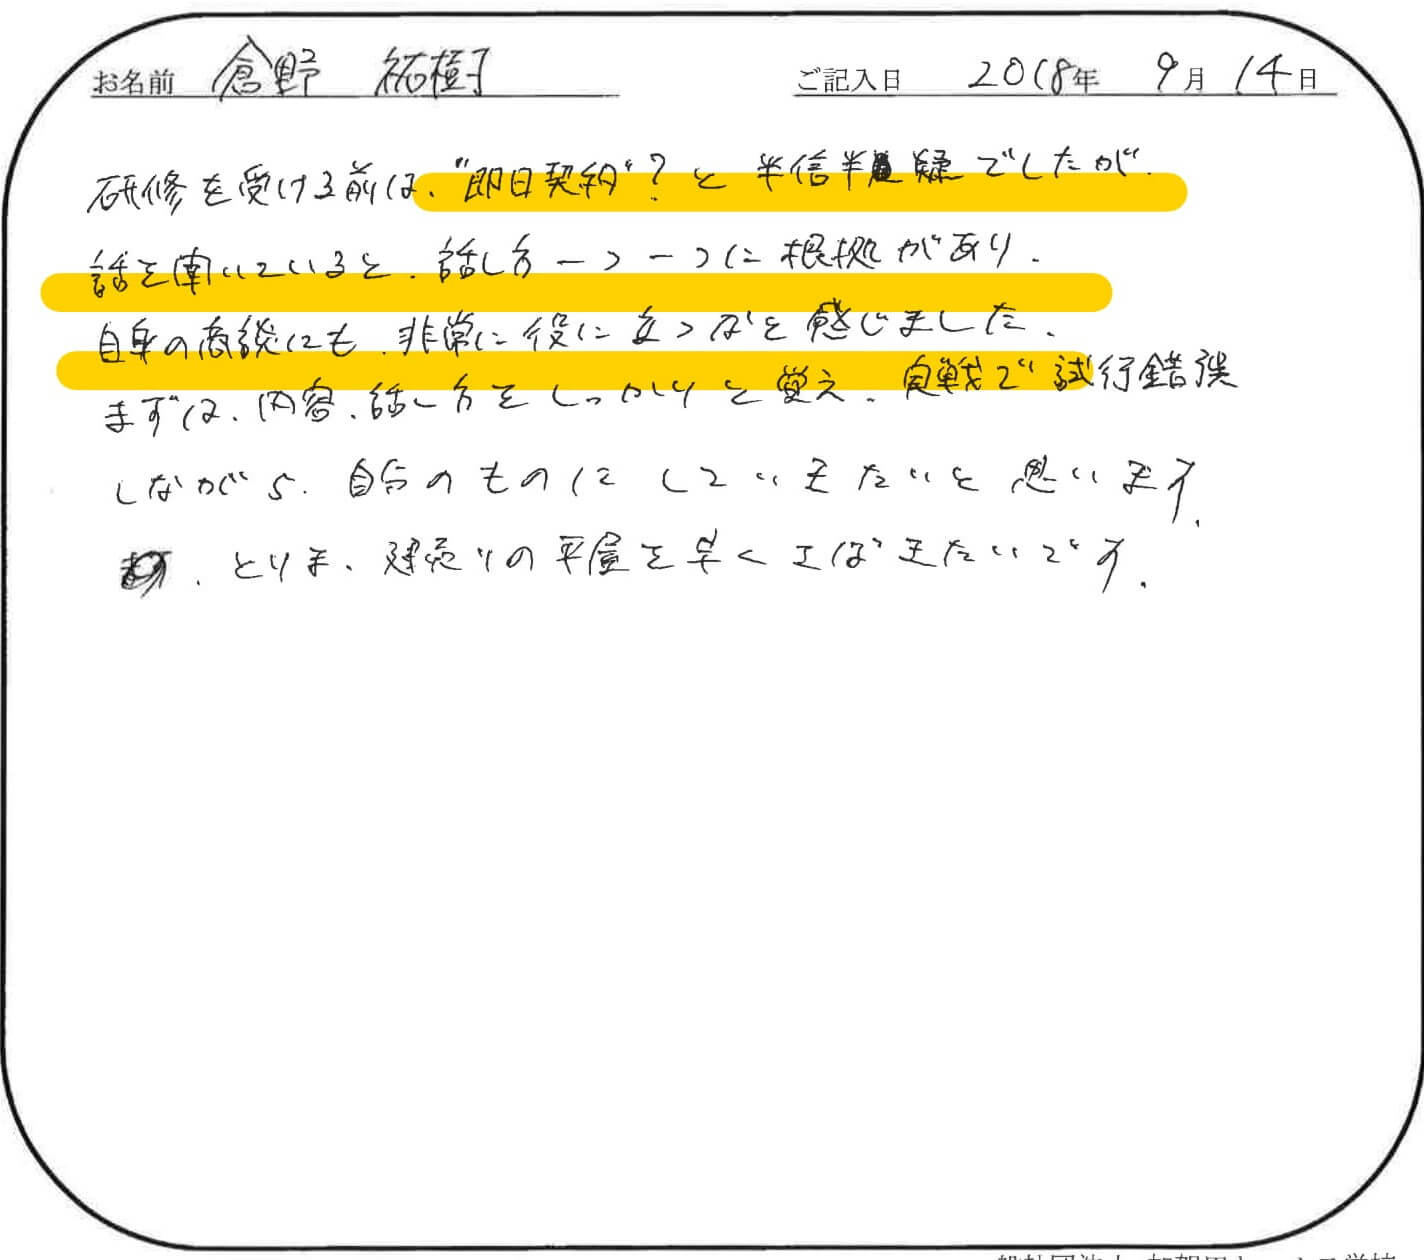 お名前 倉野 祐樹 ご記入日 2018年 9月 14日
研修を受ける前は、"即日契約"?と半信半疑でしたが、
話を聞いていると、話し方一つ一つに根拠があり、
自身の商談にも、非常に役に立つなと感じました。
まずは、内容、話し方をしっかりと覚え、実戦で試行錯誤
しながら、自分のものにしていきたいと思います。
とりま、建売りの平屋を早くさばきたいです。